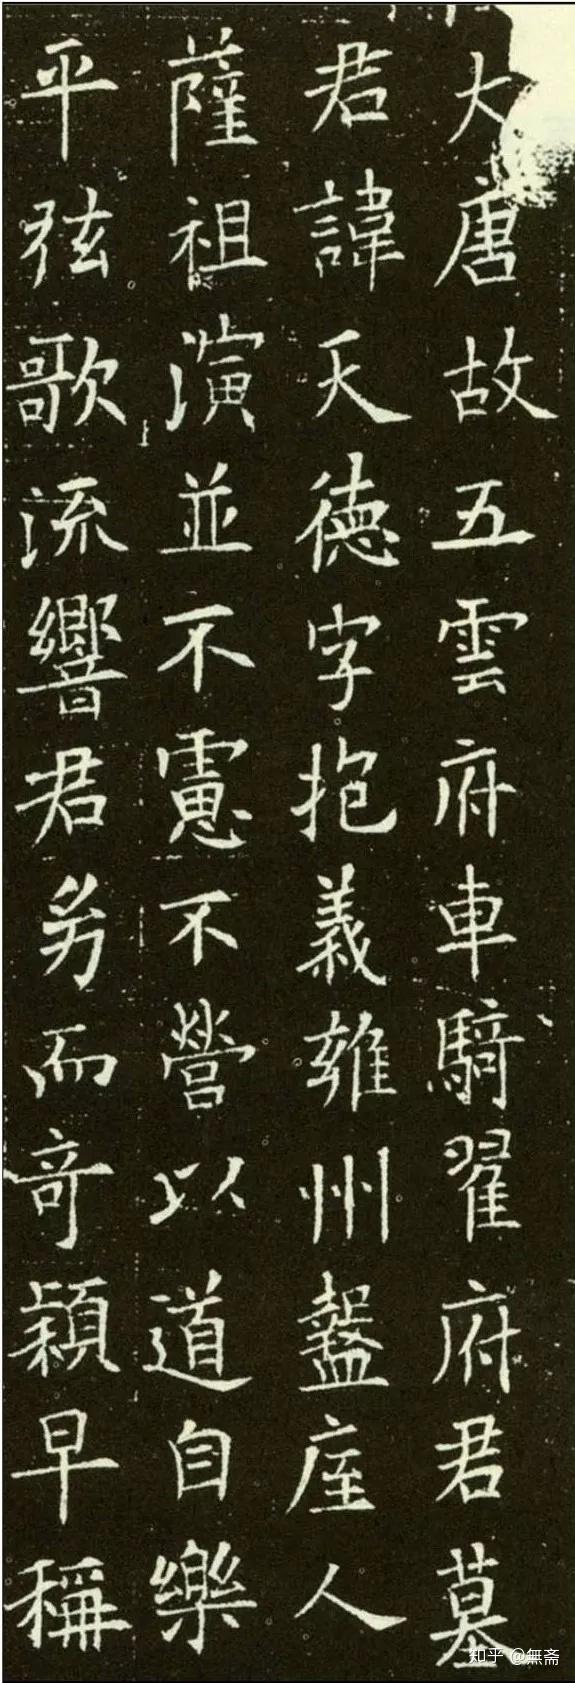 大唐故五雲府車騎翟府君墓
君諱天德字抱義雍州盩厔人
薩祖演並不慮不營以道自樂
平弦歌流響君幼而奇穎早稱
知乎 @無斋